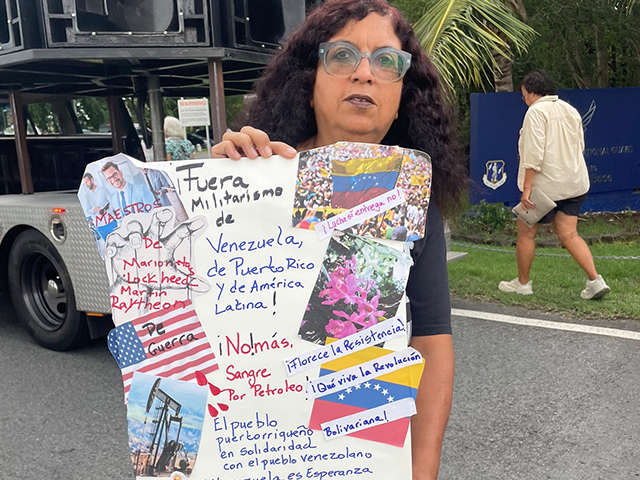 WARNING
¡Fuera
Militarismo
de
Venezuela,
de Puerto Rico
y de América
Latina!
¡No! más.
Sangre
Por Petroleo!
El pueblo
puertorriqueño
en solidaridad
con el pueblo venezolano
Venezuela es Esperanza
MAESTROS
De
Marionetas
Lockheed
Martin
Raytheon
De
Guerra
¡Lucha sí entrega no!
¡Florece la Resistencia!
¡Qué viva la Revolución
Bolivariana!